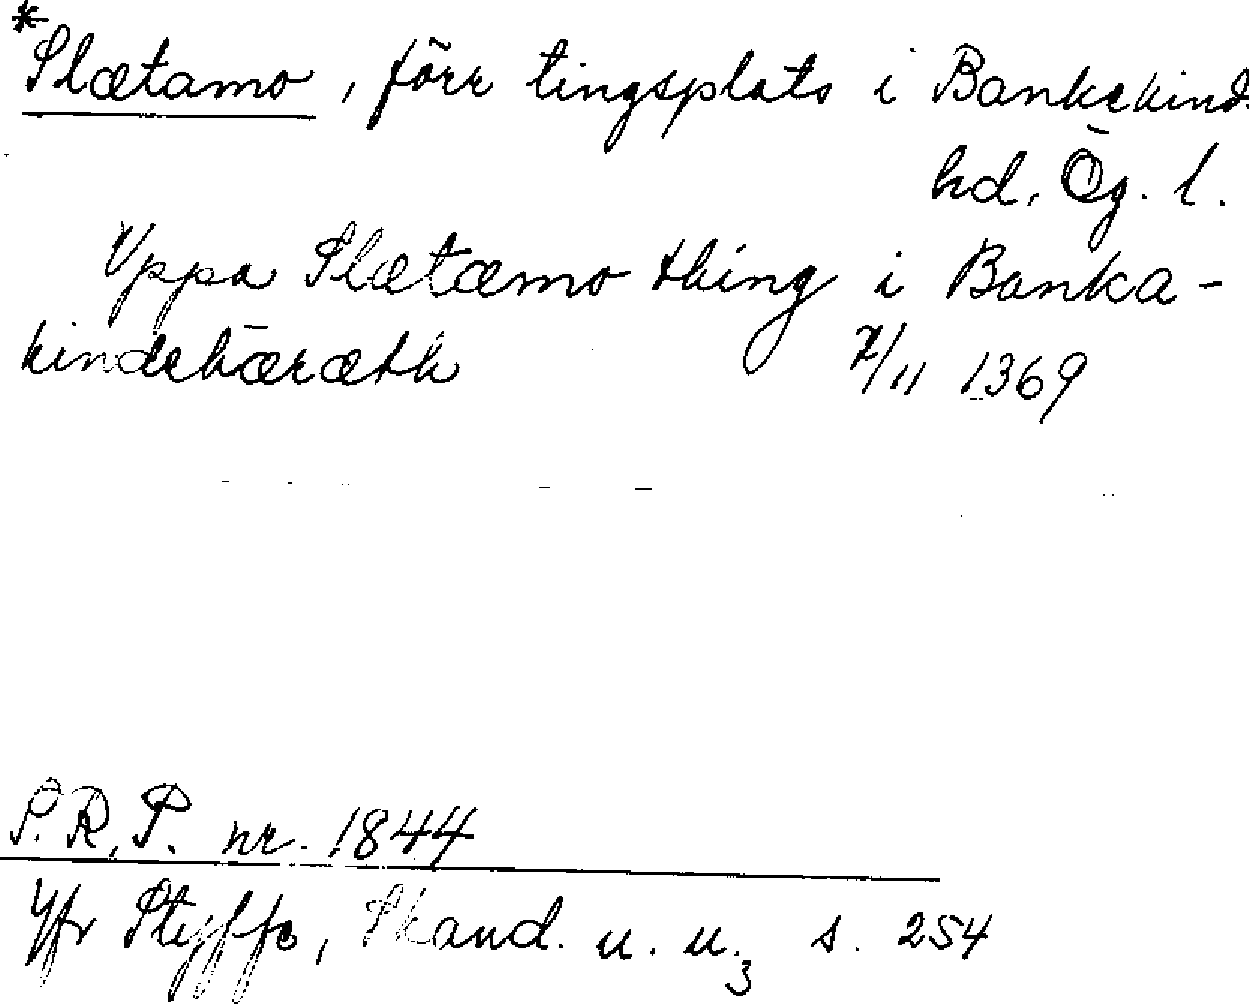 *Slætamo, förr tingsplats i Bankekind
hd, Ög. l.
Uppa Slætæmo thing i Banka-
kindshæræth 7/11 1369
S.R.P. nr. 1844
Yfr Styffe, Skand. u. u.3 s. 254